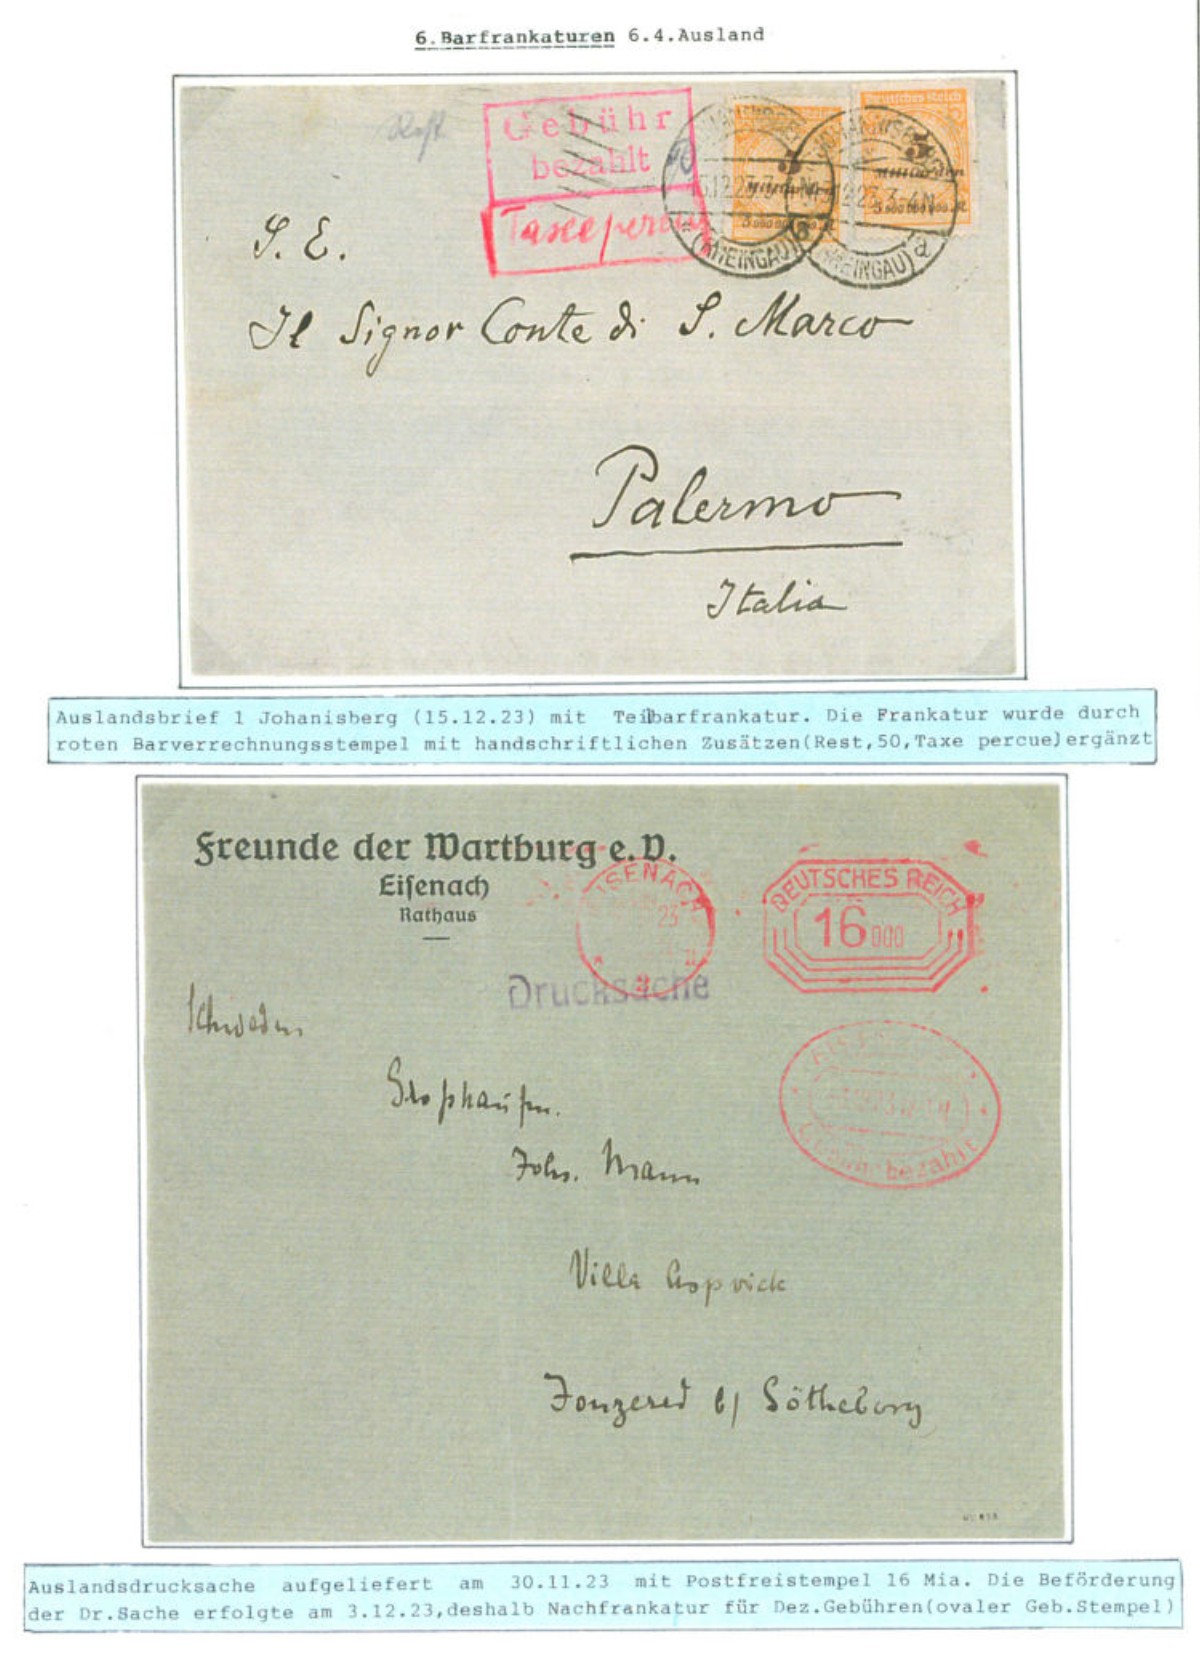 6.Barfrankaturen 6.4.Ausland
Rest
Gebühr
bezahlt
50
Taxe percue
Deutsches Reich
5
Milliarden
5
Milliarden
15.12.23.3-4N
12.23.3-4N
(RHEINGAU) a
(RHEINGAU) a
S. E.
Il Signor Conte di S. Marco
Palermo
Italia
Auslandsbrief 1 Johanisberg (15.12.23) mit Teilbarfrankatur. Die Frankatur wurde durch
roten Barverrechnungsstempel mit handschriftlichen Zusätzen(Rest,50,Taxe percue)ergänzt
Freunde der Wartburg e.V.
Eisenach
Rathaus
EISENACH
23
2
DEUTSCHES REICH
16000
Drucksache
Schweden
bezahlt
Johs. Mann
Villa Aspvick
Jonsered b/ Götheborg
Auslandsdrucksache aufgeliefert am 30.11.23 mit Postfreistempel 16 Mia. Die Beförderung
der Dr.Sache erfolgte am 3.12.23,deshalb Nachfrankatur für Dez.Gebühren(ovaler Geb.Stempel)